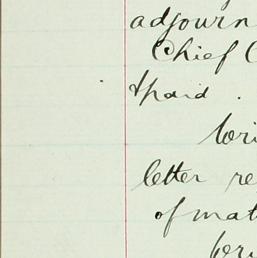 adjourn
Chief C
& paid .
wri
letter re
of mat
wri